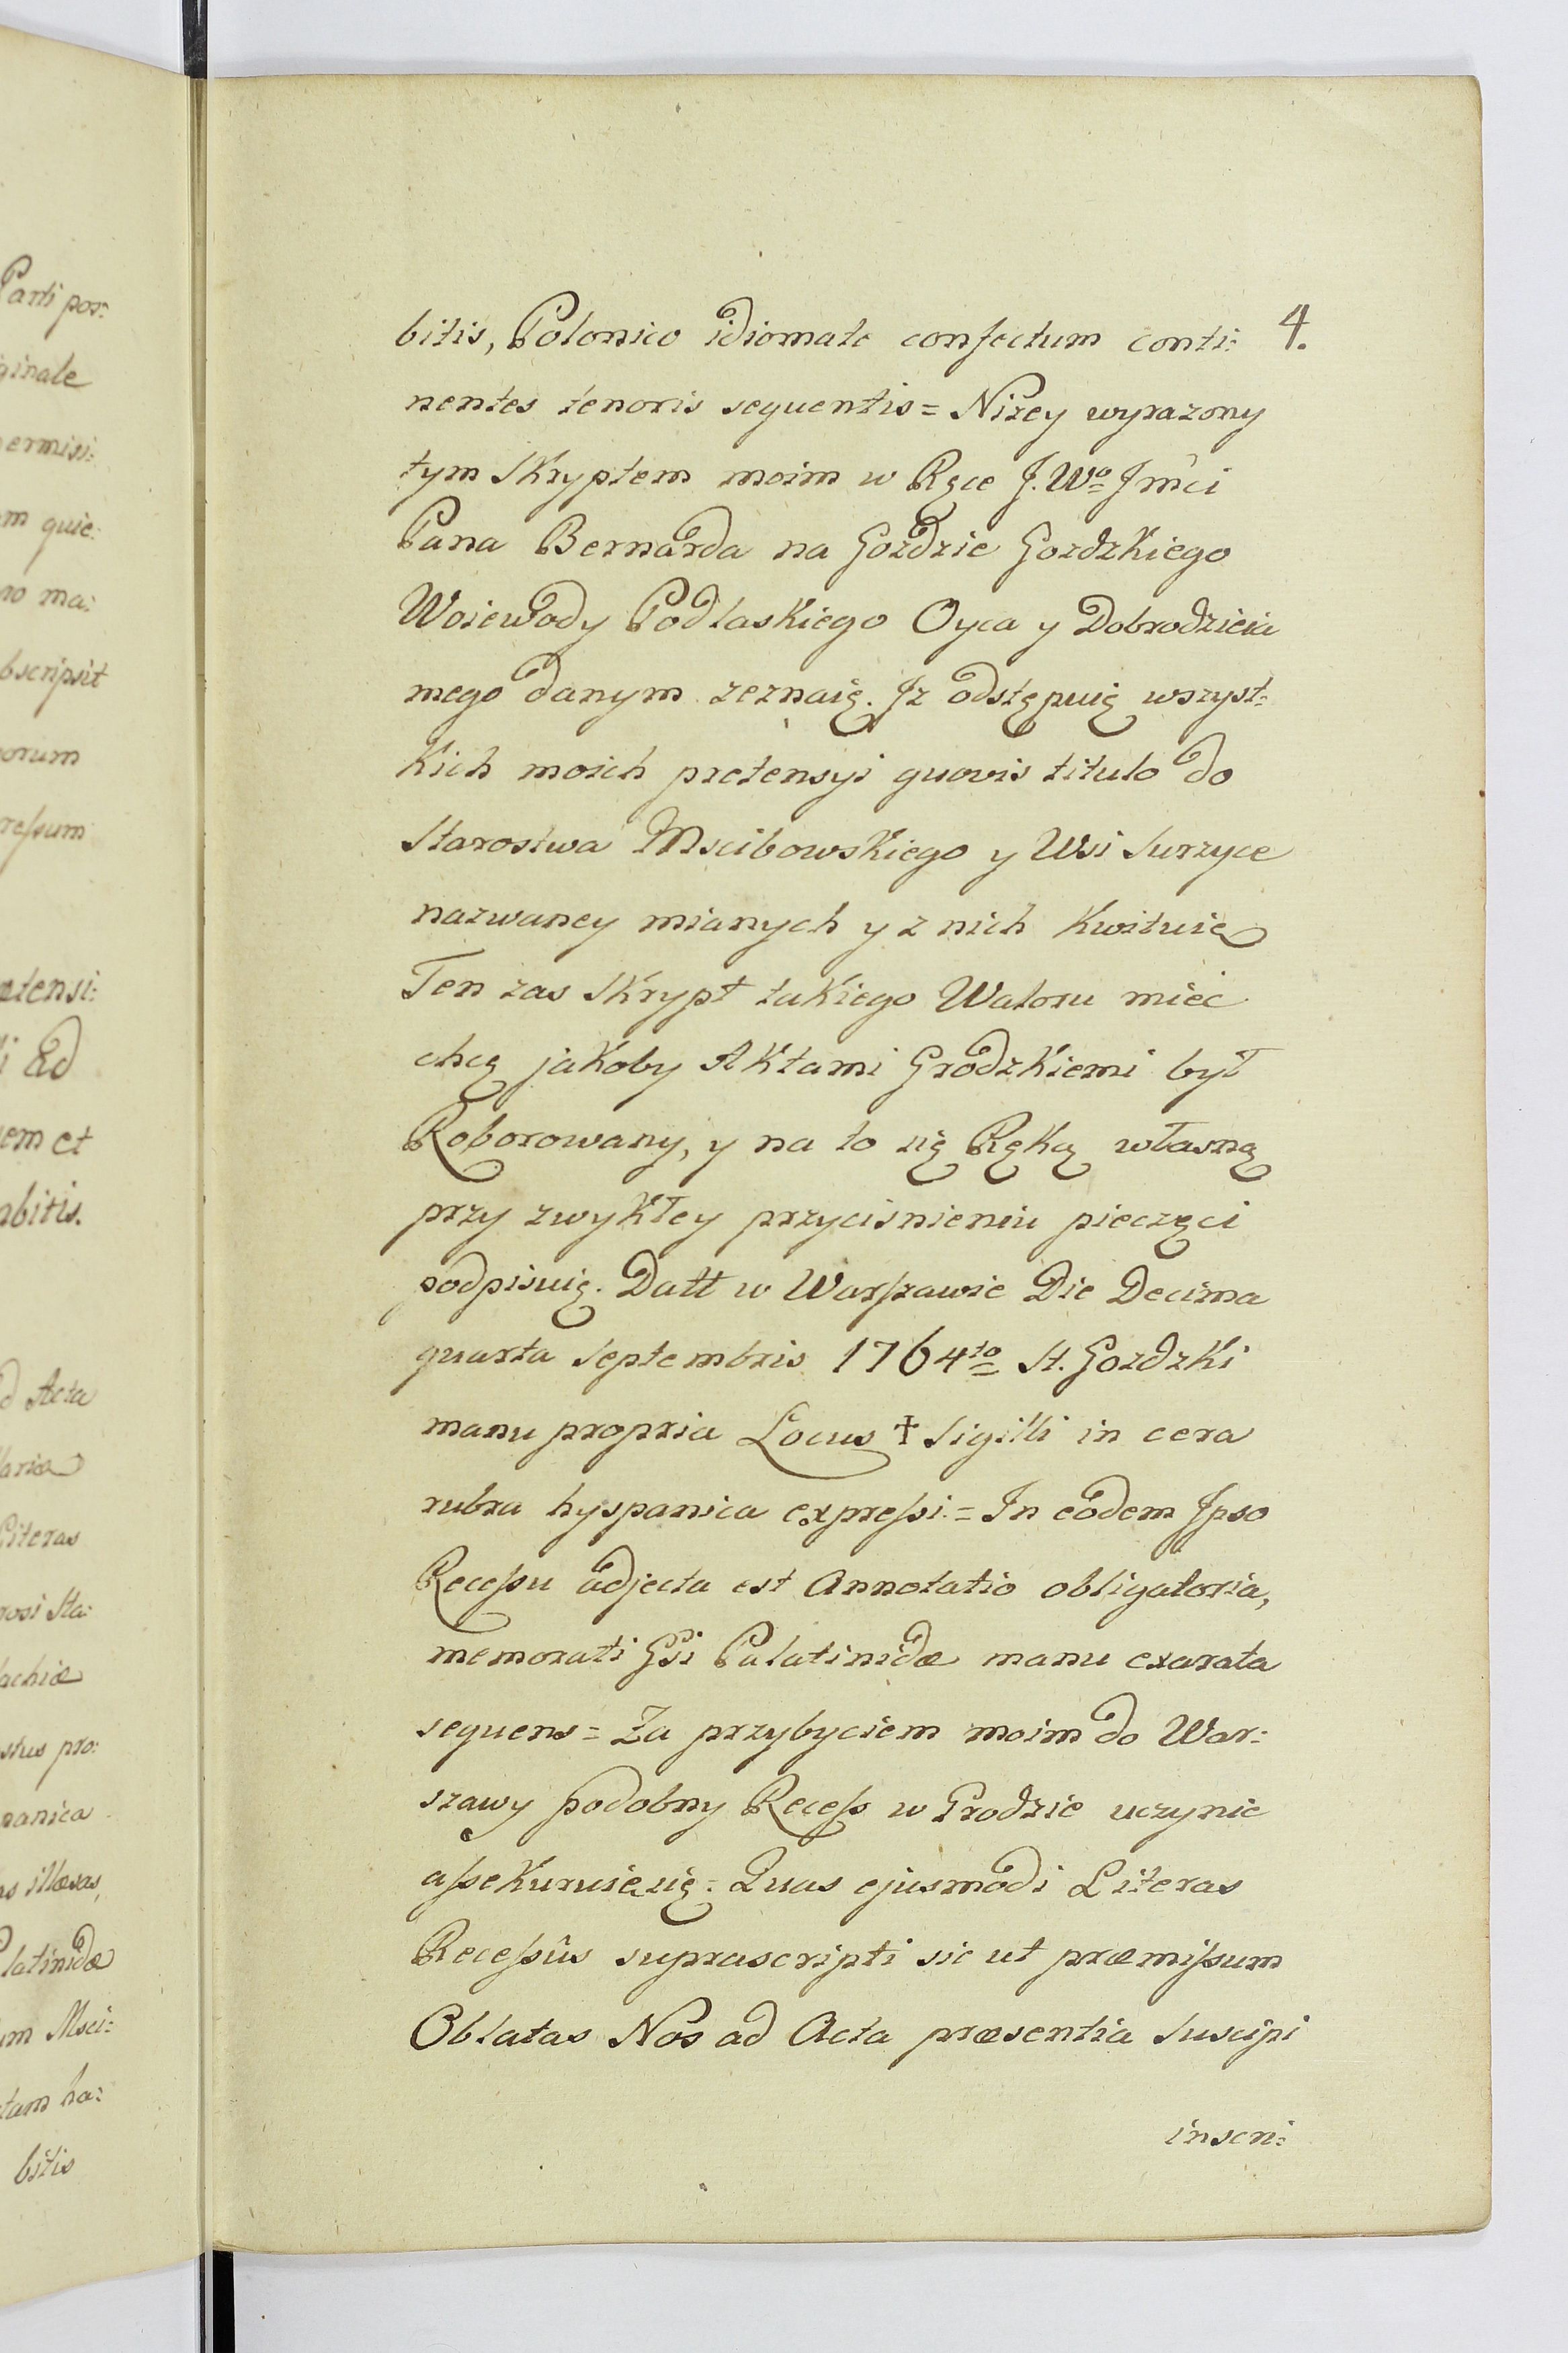 Parti por:
ginale
ermisi:
m quie:
no ma:
bscripsit
orum
reſsum
etensi:
i ad
em et
abitis.
d Acta
lariæ
Literas
rosi Sta:
lachiæ
stus pro:
panica
as illæsas,
latinidæ
um Msci:
tam ha:
bitis
4.
bitis, Polonico idiomate confectum conti:
nentes tenoris sequentis = Nizey wyrazony
tym Skryptem moim w Ręce J. Wo Jmci
Pana Bernarda na Gozdzie Gozdzkiego
Woiewody Podlaskiego Oyca y Dobrodzieia
mego danym zeznaię. Iz odstępuię wszyst:
kich moich pretensyi quovis titulo do
Starostwa Mscibowskiego y Wsi Surzyce
nazwaney mianych y z nich kwituię
Ten zas Skrypt takiego Waloru miec
chcę jakoby Aktami Grodzkiemi był
Roborowany, y na to się Ręką własną
przy zwykłey przycisnieniu pieczęci
podpisuię. Datt w Warſzawie Die Decima
quarta Septembris 1764to St. Gozdzki
manu propria Locus † Sigilli in cera
rubra hyspanica expreſsi. = In eodem Ipso
Receſsu adjecta est Annotatio obligatoria,
memorati Gsi Palatinidæ manu exarata
sequens = Za przybyciem moim do War:
szawy podobny Receſs w Grodzie uczynic
aſsekuruię się. Quas ejusmodi Literas
Receſsûs suprascripti sic ut præmiſsum
Oblatas Nos ad Acta præsentia Suscipi
inscri: